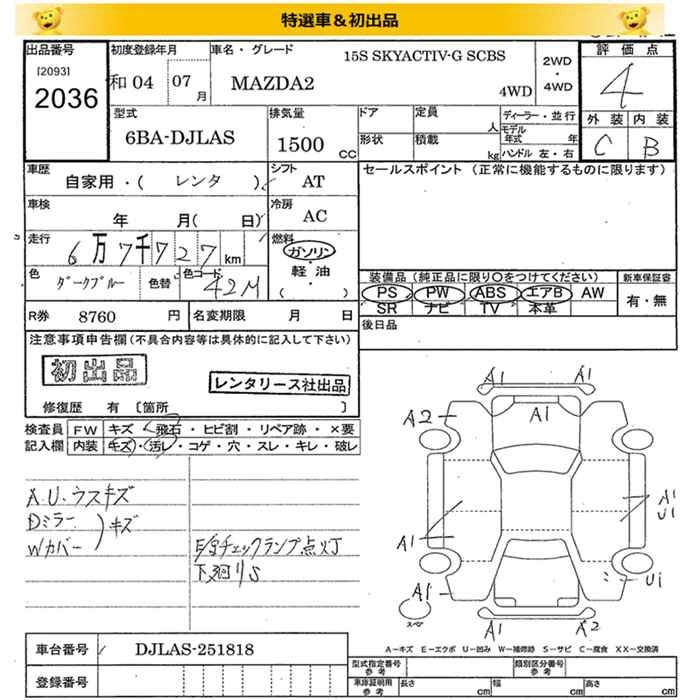 特選車＆初出品
出品番号
[2093]
2036
初度登録年月
和04 07月
車名・グレード
15S SKYACTIV-G SCBS
MAZDA2
4WD
2WD
・
4WD
評価点
4
外装 内装
C B
型式
6BA-DJLAS
排気量
1500 CC
ドア
定員
人
形状
積載
kg
ディーラー・並行
モデル年式 年
ハンドル 左・右
車歴
自家用・( レンタ )
シフト
AT
車検
年 月( 日)
冷房
AC
走行
6万7千727km
燃料
ガソリン
・
軽油
( )
色
ダークブルー
色替
色コード
42M
R券 8760 円
名変期限 月 日
セールスポイント (正常に機能するものに限ります)
装備品 (純正品に限り○をつけてください)
PS PW ABS エアB AW
SR ナビ TV 本革
新車保証書
有・無
後日品
注意事項申告欄(不具合内容等は具体的に記入して下さい)
初出品
レンタリース社出品
修復歴 有 [箇所 ]
検査員
記入欄
FW キズ・飛石・ヒビ割・リペア跡・×要
内装 キズ・汚レ・コゲ・穴・スレ・キレ・破レ
A.U.ウスキズ
Dミラー
Wカバー
)キズ
E/Gチェックランプ点灯
下廻りS
A1
A1
A1
A2
A1
A1
U1
A1
U1
A1
A2
スペア
A－キズ E－エクボ U－凹み W－補修跡 S－サビ C－腐食 XX－交換済
車台番号
DJLAS-251818
登録番号
型式指定番号
参考
類別区分番号
参考
車庫証明用
参考
長さ cm
幅 cm
高さ cm